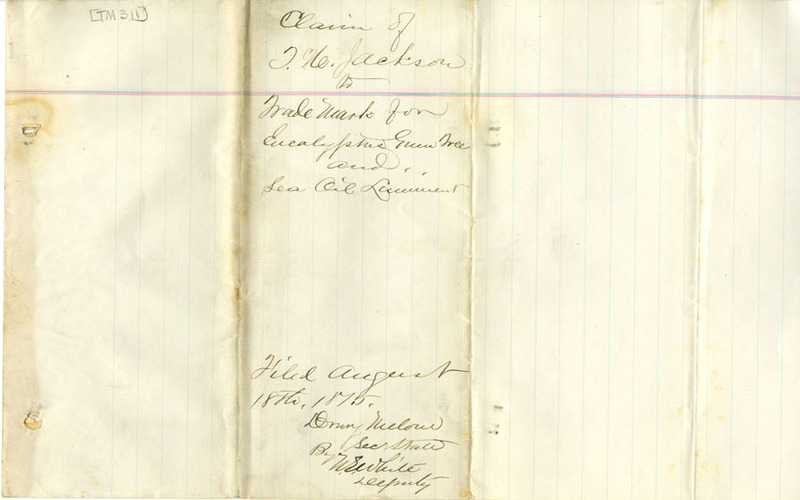 [TM 311]
Claim of
T. H. Jackson
to
Trade Mark for
Eucalyptus Gum Tree
and
Sea Oil Liniment
Filed August
18th, 1875.
Drury Melone
Sec State
By
Deputy